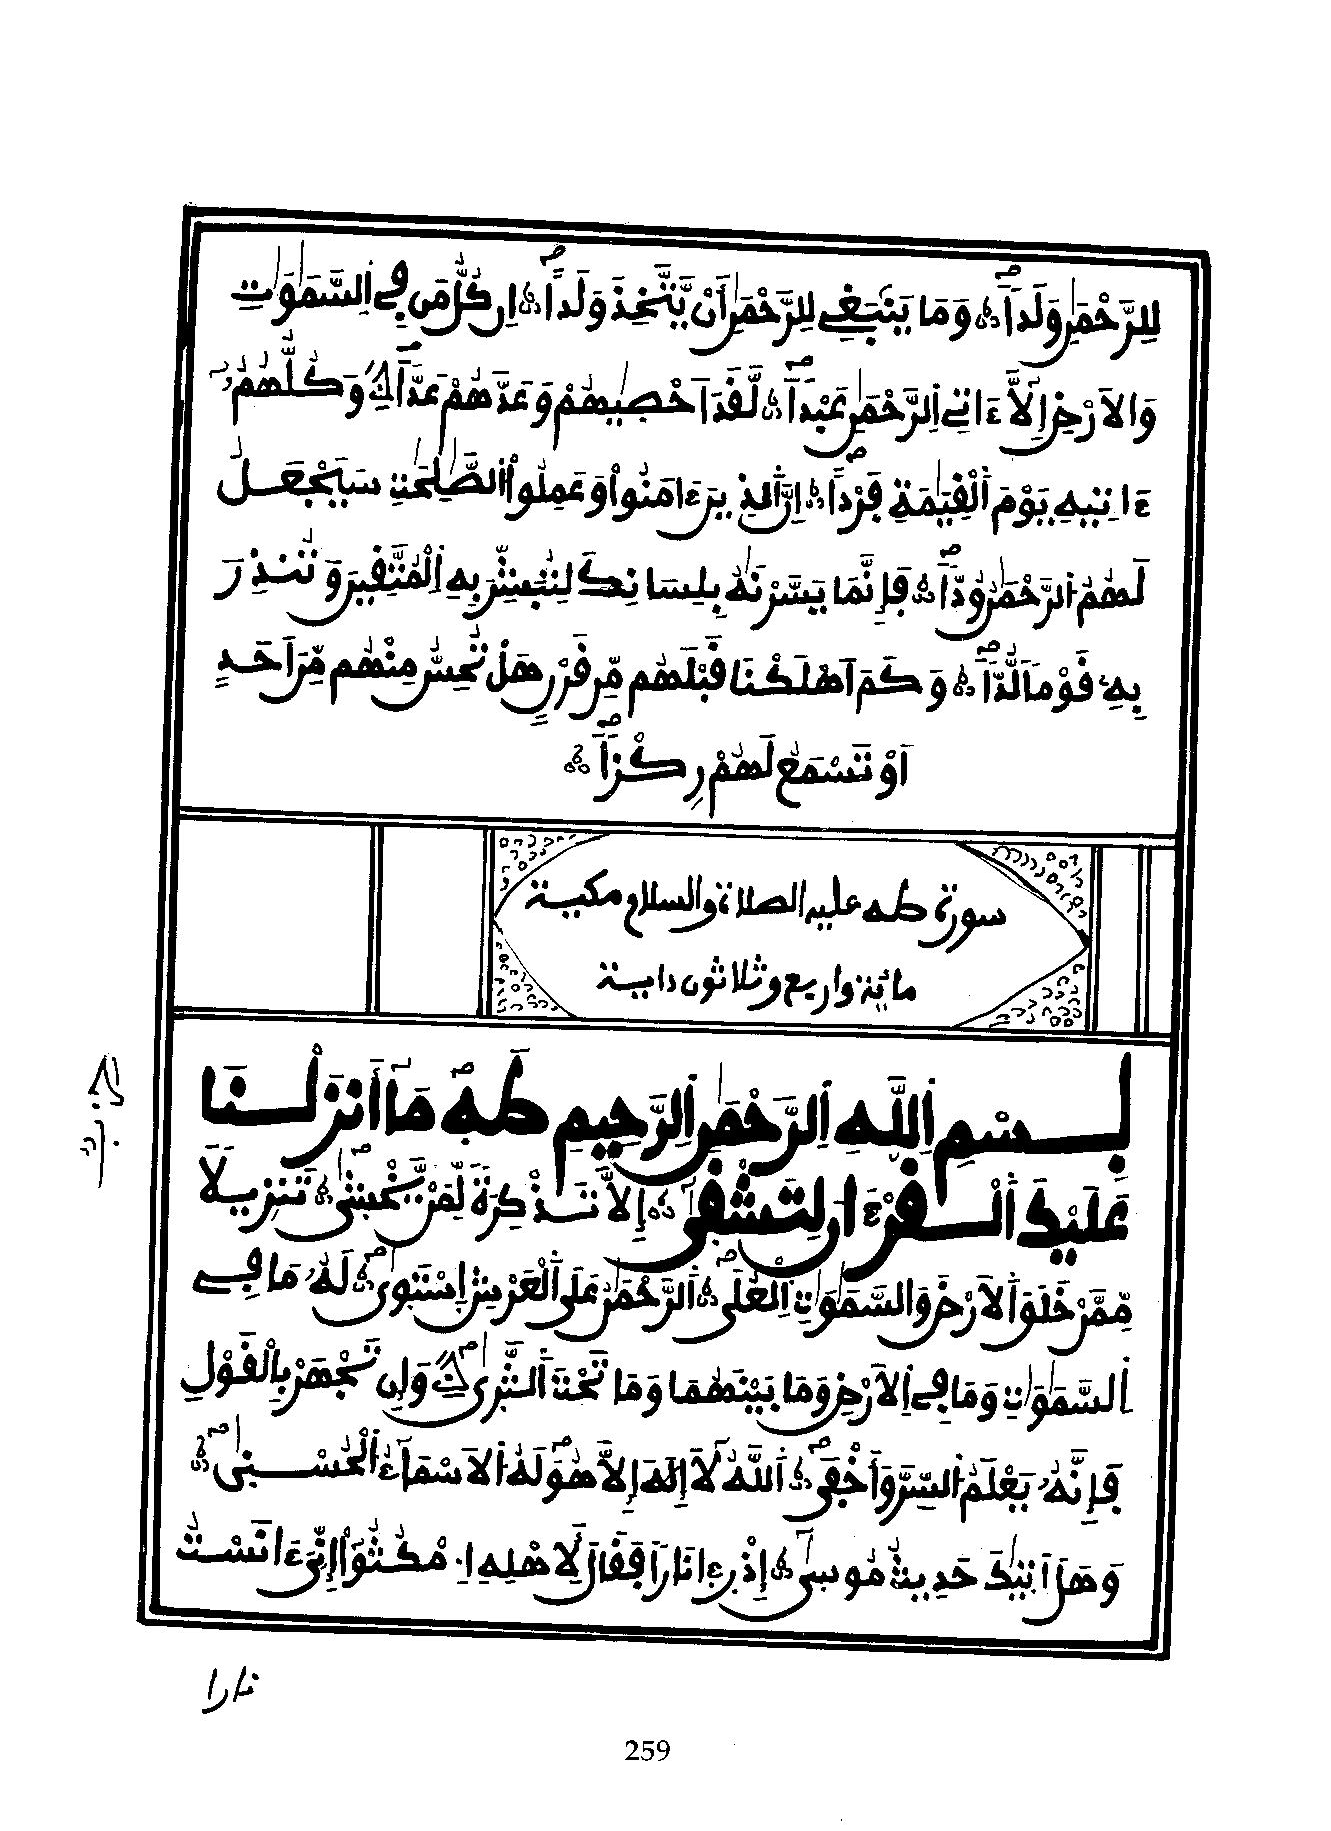 لِلرَّحْمَٰنِ وَلَداً وَمَا يَنۢبَغِي لِلرَّحْمَٰنِ أَنْ يَّتَّخِذَ وَلَداً اِن كُلُّ مَن فِي اِ۬لسَّمَٰوَٰتِ
وَالَارْضِ إِلَّآ ءَاتِي اِ۬لرَّحْمَٰنِ عَبْداً لَّقَدَ اَحْصٜيٰهُمْ وَعَدَّهُمْ عَدّاً وَكُلُّهُمُۥٓ
ءَاتِيهِ يَوْمَ اَ۬لْقِيَٰمَةِ فَرْداً اِنَّ اَ۬لذِينَ ءَامَنُواْ وَعَمِلُواْ اُ۬لصَّٰلِحَٰتِ سَيَجْعَلُ
لَهُمُ اُ۬لرَّحْمَٰنُ وُدّاً فَإِنَّمَا يَسَّرْنَٰهُ بِلِسَانِكَ لِتُبَشِّرَ بِهِ اِ۬لْمُتَّقِينَ وَتُنذِرَ
بِهِۦ قَوْماً لُّدّاً وَكَمَ اَهْلَكْنَا قَبْلَهُم مِّن قَرْنٍ هَلْ تُحِسُّ مِنْهُم مِّنَ اَحَدٍ
اَوْ تَسْمَعُ لَهُمْ رِكْزاً
سورة طه عليه الصلاة والسلام مكية
مائة واربع وثلاثون داية
بِسْمِ اِ۬للَّهِ اِ۬لرَّحْمَٰنِ اِ۬لرَّحِيمِ طَهَ مَآ أَنزَلْنَا
عَلَيْكَ اَ۬لْقُرْءَانَ لِتَشْقٜىٰٓ إِلَّا تَذْكِرَةً لِّمَنْ يَّخْشٜىٰ تَنزِيلًا
مِّمَّنْ خَلَقَ اَ۬لَارْضَ وَالسَّمَٰوَٰتِ اِ۬لْعُلَى اَ۬لرَّحْمَٰنُ عَلَى اَ۬لْعَرْشِ اِ۪سْتَوٜىٰ لَهُۥ مَا فِي
اِ۬لسَّمَٰوَٰتِ وَمَا فِي اِ۬لَارْضِ وَمَا بَيْنَهُمَا وَمَا تَحْتَ اَ۬لثَّرٜىٰ وَإِن تَجْهَرْ بِالْقَوْلِ
فَإِنَّهُۥ يَعْلَمُ اُ۬لسِّرَّ وَأَخْفَى اَ۬للَّهُ لَآ إِلَٰهَ إِلَّا هُوَ لَهُ اُ۬لَاسْمَآءُ اُ۬لْحُسْنٜىٰ
وَهَلَ اَتٜيٰكَ حَدِيثُ مُوسٜىٰٓ إِذْ رِءَا نَاراً فَقَالَ لِأَهْلِهِ اِ۟مْكُثُوٓاْ إِنِّيَ ءَانَسْتُ
نارا
259